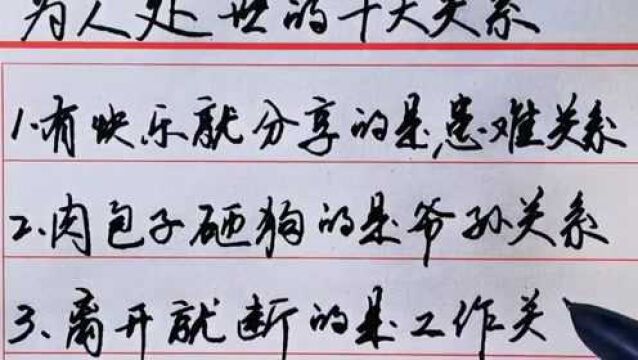 为人处世的十大关系
1.有快乐就分享的是患难关系
2.肉包子砸狗的是爷孙关系
3、离开就断的是工作关